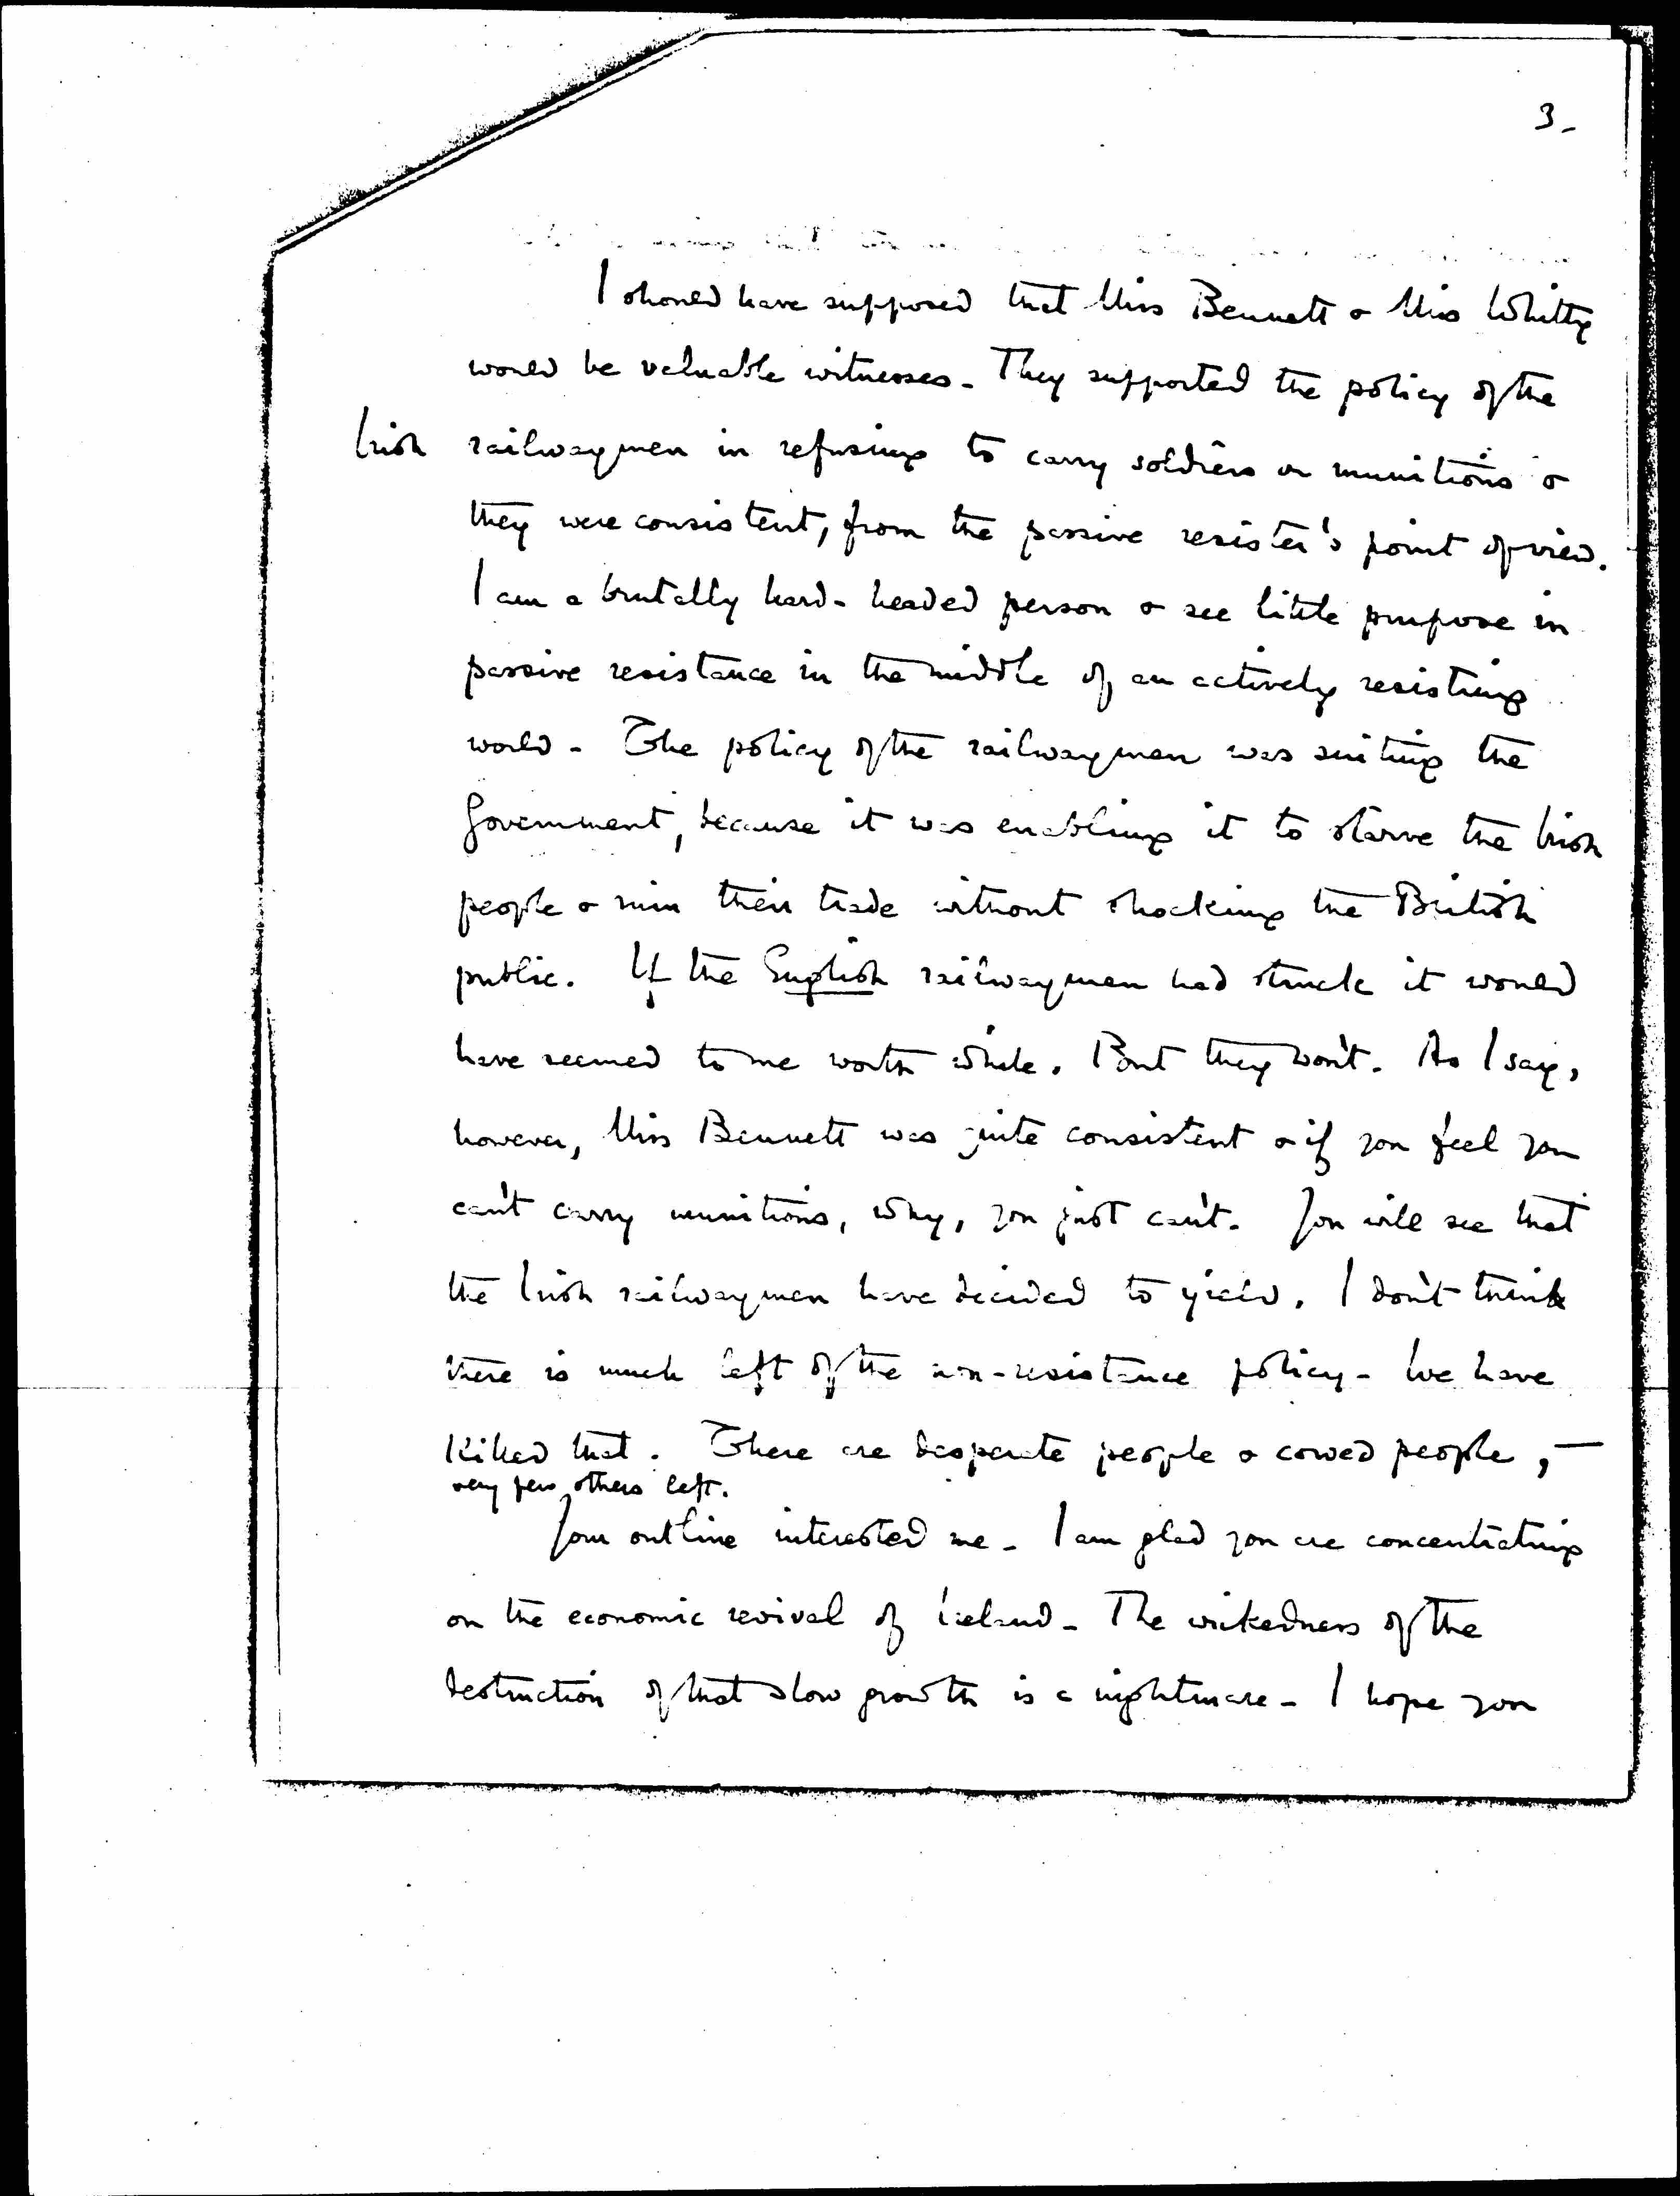 3-
I should have supposed that Miss Bennett & Miss Whitty
would be valuable witnesses - They supported the policy of the
Irish railwaymen in refusing to carry soldiers or munitions &
they were consistent, from the passive resister's point of view.
I am a brutally hard-headed person & see little purpose in
passive resistance in the middle of an actively resisting
world - The policy of the railwaymen was suiting the
Government, because it was enabling it to starve the Irish
people & ruin their trade without shocking the British
public. If the English railwaymen had struck it would
have seemed to me worth while. But they won't. As I say,
however, Miss Bennett was quite consistent & if you feel you
can't carry munitions, why, you just can't. You will see that
the Irish railwaymen have decided to yield. I don't think
there is much left of the non-resistance policy - We have
killed that. There are desperate people & cowed people, -
very few others left.
Your outline interested me - I am glad you are concentrating
on the economic revival of Ireland - The wickedness of the
destruction of that slow growth is a nightmare - I hope you